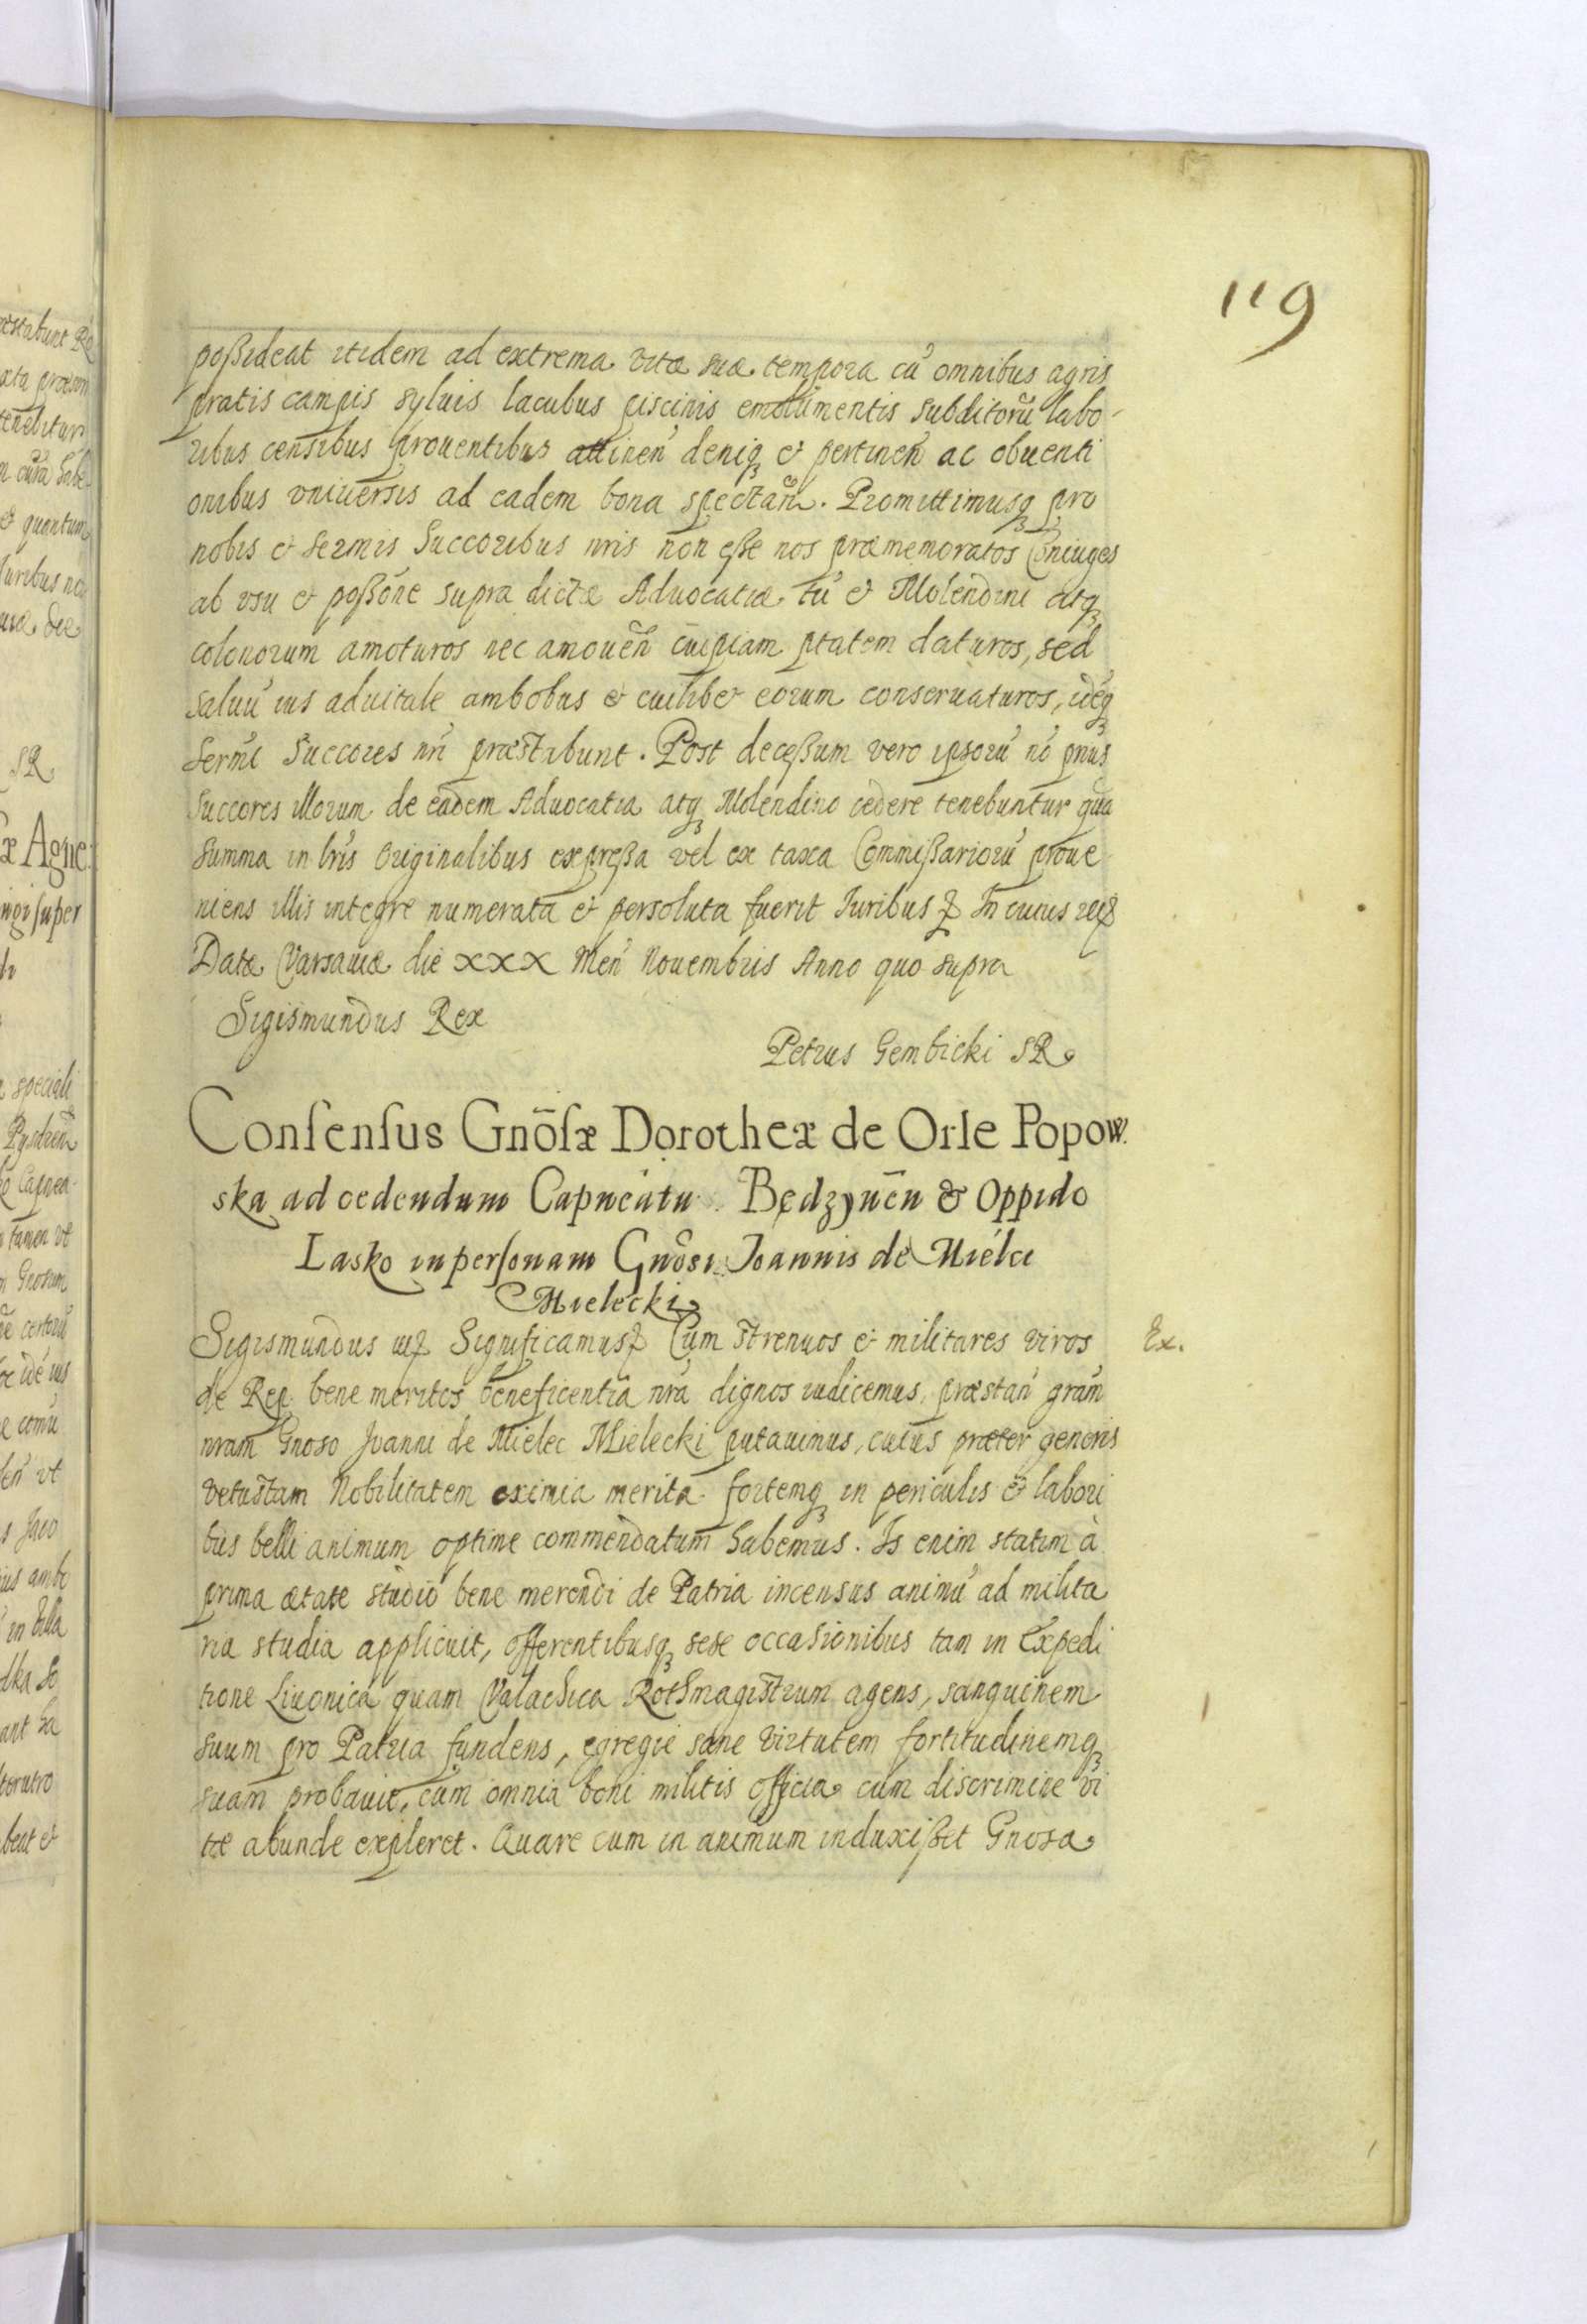 119
possideat itidem ad extrema vitæ suæ tempora cū omnibus agris
pratis campis syluis lacubus piscinis emolumentis subditorū labo-
ribus censibus prouentibus attinen̄ deniq₃ et pertinen̄ ac obuenti
onibus vniuersis ad eadem bona spectan̄. Promittimusq₃ pro
nobis et sermis Succoribus nris non esse nos præmemoratos Coniuges
ab vsu et possōne supra dictæ Aduocatiæ tū et Molendini atq₃
colonorum amoturos nec amouen̄ cuipiam ptatem daturos, sed
saluū ius aduitale ambobus et cuilibet eorum conseruaturos, idēq₃
sermi Succores nri præstabunt. Post decessum vero ipsorū nō prius
succores illorum de eadem Aduocatia atq₃ Molendino cedere tenebuntur quā
summa in lris Originalibus expressa vel ex taxa Commissariorū proue
niens illis integre numerata et persoluta fuerit Iuribus ꝛ In cuius rei ꝛ
Datæ Varsauiæ die XXX Men̄ Nouembris Anno quo supra
Sigismundus Rex
Petrus Gembicki SR
Consensus Gnōsæ Dorotheæ de Orle Popow
ska ad cedendum Capneatu Będzynēn & Oppido
Lasko in personam Gnōsi Joannis de Mielec
Mielecki
Sigismundus ꝛ Significamus ꝛ Cum strenuos et militares viros
Ex.
de Rep. bene meritos beneficentia nrā dignos iudicemus, præstan̄ grām
nram Gnoso Joanni de Mielec Mielecki putauimus, cuius præter generis
vetustam Nobilitatem eximia merita fortemq₃ in periculis et labori
bus belli animum optime commendatum habemus. Is enim statim à
prima ætate studio bene merendi de Patria incensus animū ad milita
ria studia applicuit, offerentibusq₃ sese occasionibus tam in Expedi
tione Liuonica quam Valachica Rothmagistrum agens, sanguinem
suum pro Patria fundens, egregie sane virtutem fortitudinemq₃
suam probauit, cum omnia boni militis officia cum discrimine vi
tæ abunde expleret. Quare cum in animum induxisset Gnosa